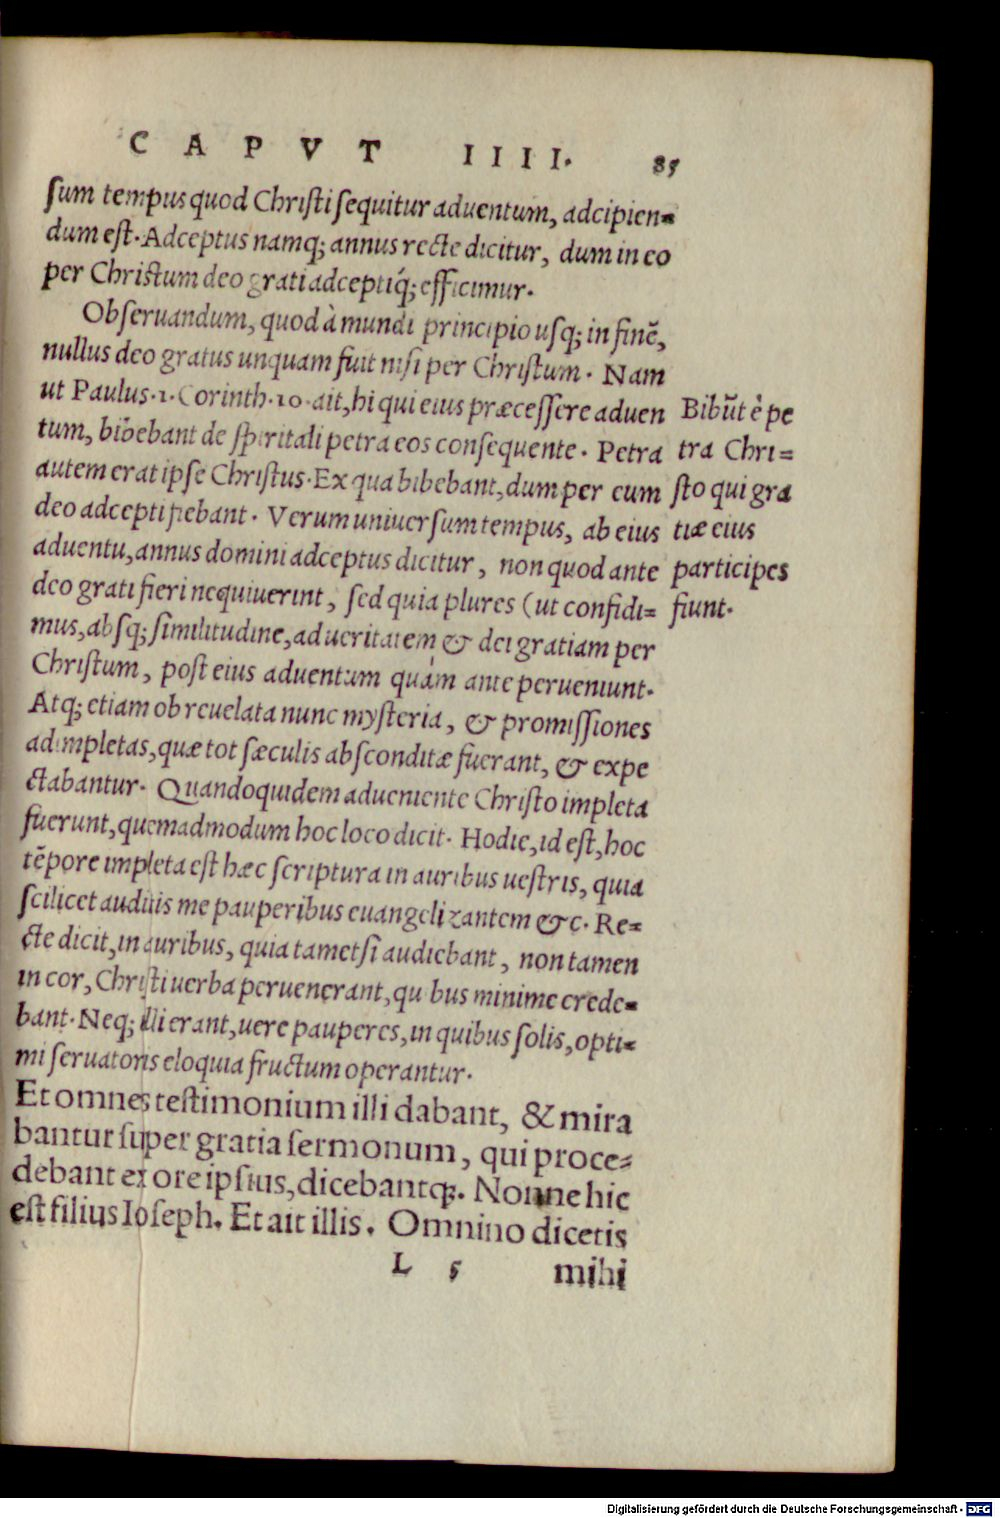 CAPVT IIII. 85
sum tempus quod Christi sequitur aduentum, adcipien=
dum est. Adceptus namq; annus recte dicitur, dum in eo
per Christum deo grati adceptiq́; efficimur.
Obseruandum, quod à mundi principio usq; in finẽ,
nullus deo gratus unquam fuit nisi per Christum. Nam
ut Paulus. 1. Corinth. 10. ait, hi qui eius præcessere aduen
tum, bibebant de spiritali petra eos consequente. Petra
autem erat ipse Christus. Ex qua bibebant, dum per eum
deo adcepti fiebant. Verum uniuersum tempus, ab eius
aduentu, annus domini adceptus dicitur, non quod ante
deo grati fieri nequiuerint, sed quia plures (ut confidi=
mus, absq; similitudine, ad ueritatem & dei gratiam per
Christum, post eius aduentum quàm ante perueniunt.
Atq; etiam ob reuelata nunc mysteria, & promissiones
adimpletas, quæ tot sæculis absconditæ fuerant, & expe
ctabantur. Quandoquidem adueniente Christo impleta
fuerunt, quemadmodum hoc loco dicit. Hodie, id est, hoc
tẽpore impleta est hæc scriptura in auribus uestris, quia
scilicet auditis me pauperibus euangelizantem &c. Re=
cte dicit, in auribus, quia tametsi audiebant, non tamen
in cor, Christi uerba peruenerant, quibus minime crede=
bant. Neq; illi erant, uere pauperes, in quibus solis, opti=
mi seruatoris eloquia fructum operantur.
Et omnes testimonium illi dabant, & mira
bantur super gratia sermonum, qui proce=
debant ex ore ipsius, dicebantq;. Nonne hic
est filius Ioseph. Et ait illis. Omnino dicetis
L 5 mihi
Bibũt è pe
tra Chri=
sto qui gra
tiæ eius
participes
fiunt.
Digitalisierung gefördert durch die Deutsche Forschungsgemeinschaft - DFG